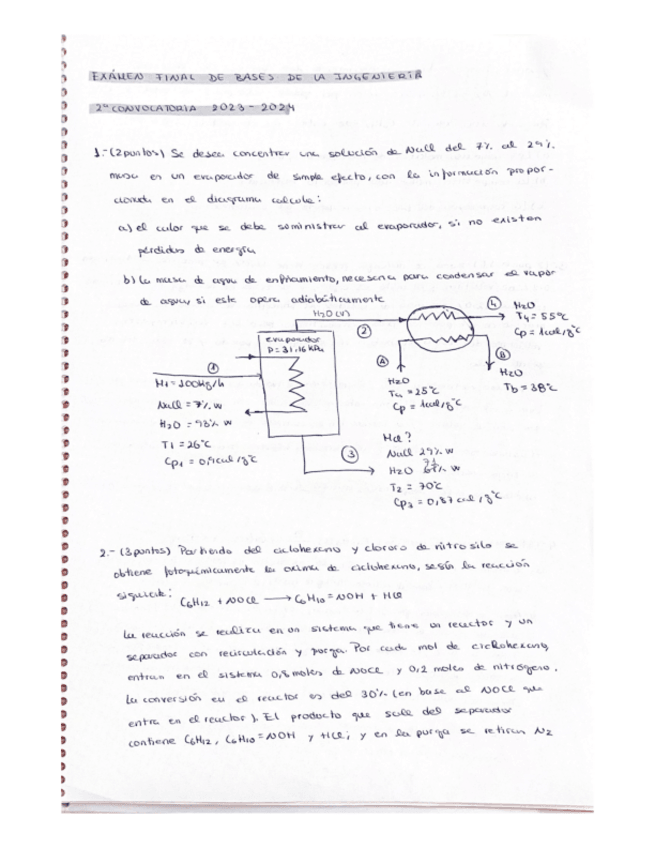 EXÁMEN FINAL DE BASES DE LA INGENIERIA
2ª CONVOCATORIA 2023-2024
1.-(2puntos) Se desea concentrar una solución de NaCl del 7% al 29%
masa en un evaporador de simple efecto, con la información propor-
cionada en el diagrama calcule:
a) el calor que se debe suministrar al evaporador, si no existen
pérdidas de energía
b) la masa de agua de enfriamiento, necesaria para condensar el vapor
de agua, si este opera adiabáticamente
H2O (v)
2
4
H2O
T4 = 55ºC
Cp = 1cal/gºC
evaporador
P = 31.16 kPa
1
M1 = 100kg/h
NaCl = 7% w
H2O = 93% w
T1 = 26ºC
Cp1 = 0,9cal/gºC
A
H2O
Ta = 25ºC
Cp = 1cal/gºC
B
H2O
Tb = 38ºC
3
NaCl 29% w
H2O 71% w
T2 = 70ºC
Cp3 = 0,87 cal/gºC
2.- (3puntos) Partiendo del ciclohexano y cloruro de nitrosilo se
obtiene fotoquímicamente la oxima de ciclohexano, según la reacción
siguiente: C6H12 + NOCl → C6H10=NOH + HCl
La reacción se realiza en un sistema que tiene un reactor y un
separador con recirculación y purga. Por cada mol de ciclohexano,
entran en el sistema 0,8 moles de NOCl y 0,2 moles de nitrógeno.
La conversión en el reactor es del 30% (en base al NOCl que
entra en el reactor). El producto que sale del separador
contiene C6H12, C6H10=NOH y HCl; y en la purga se retiran N2